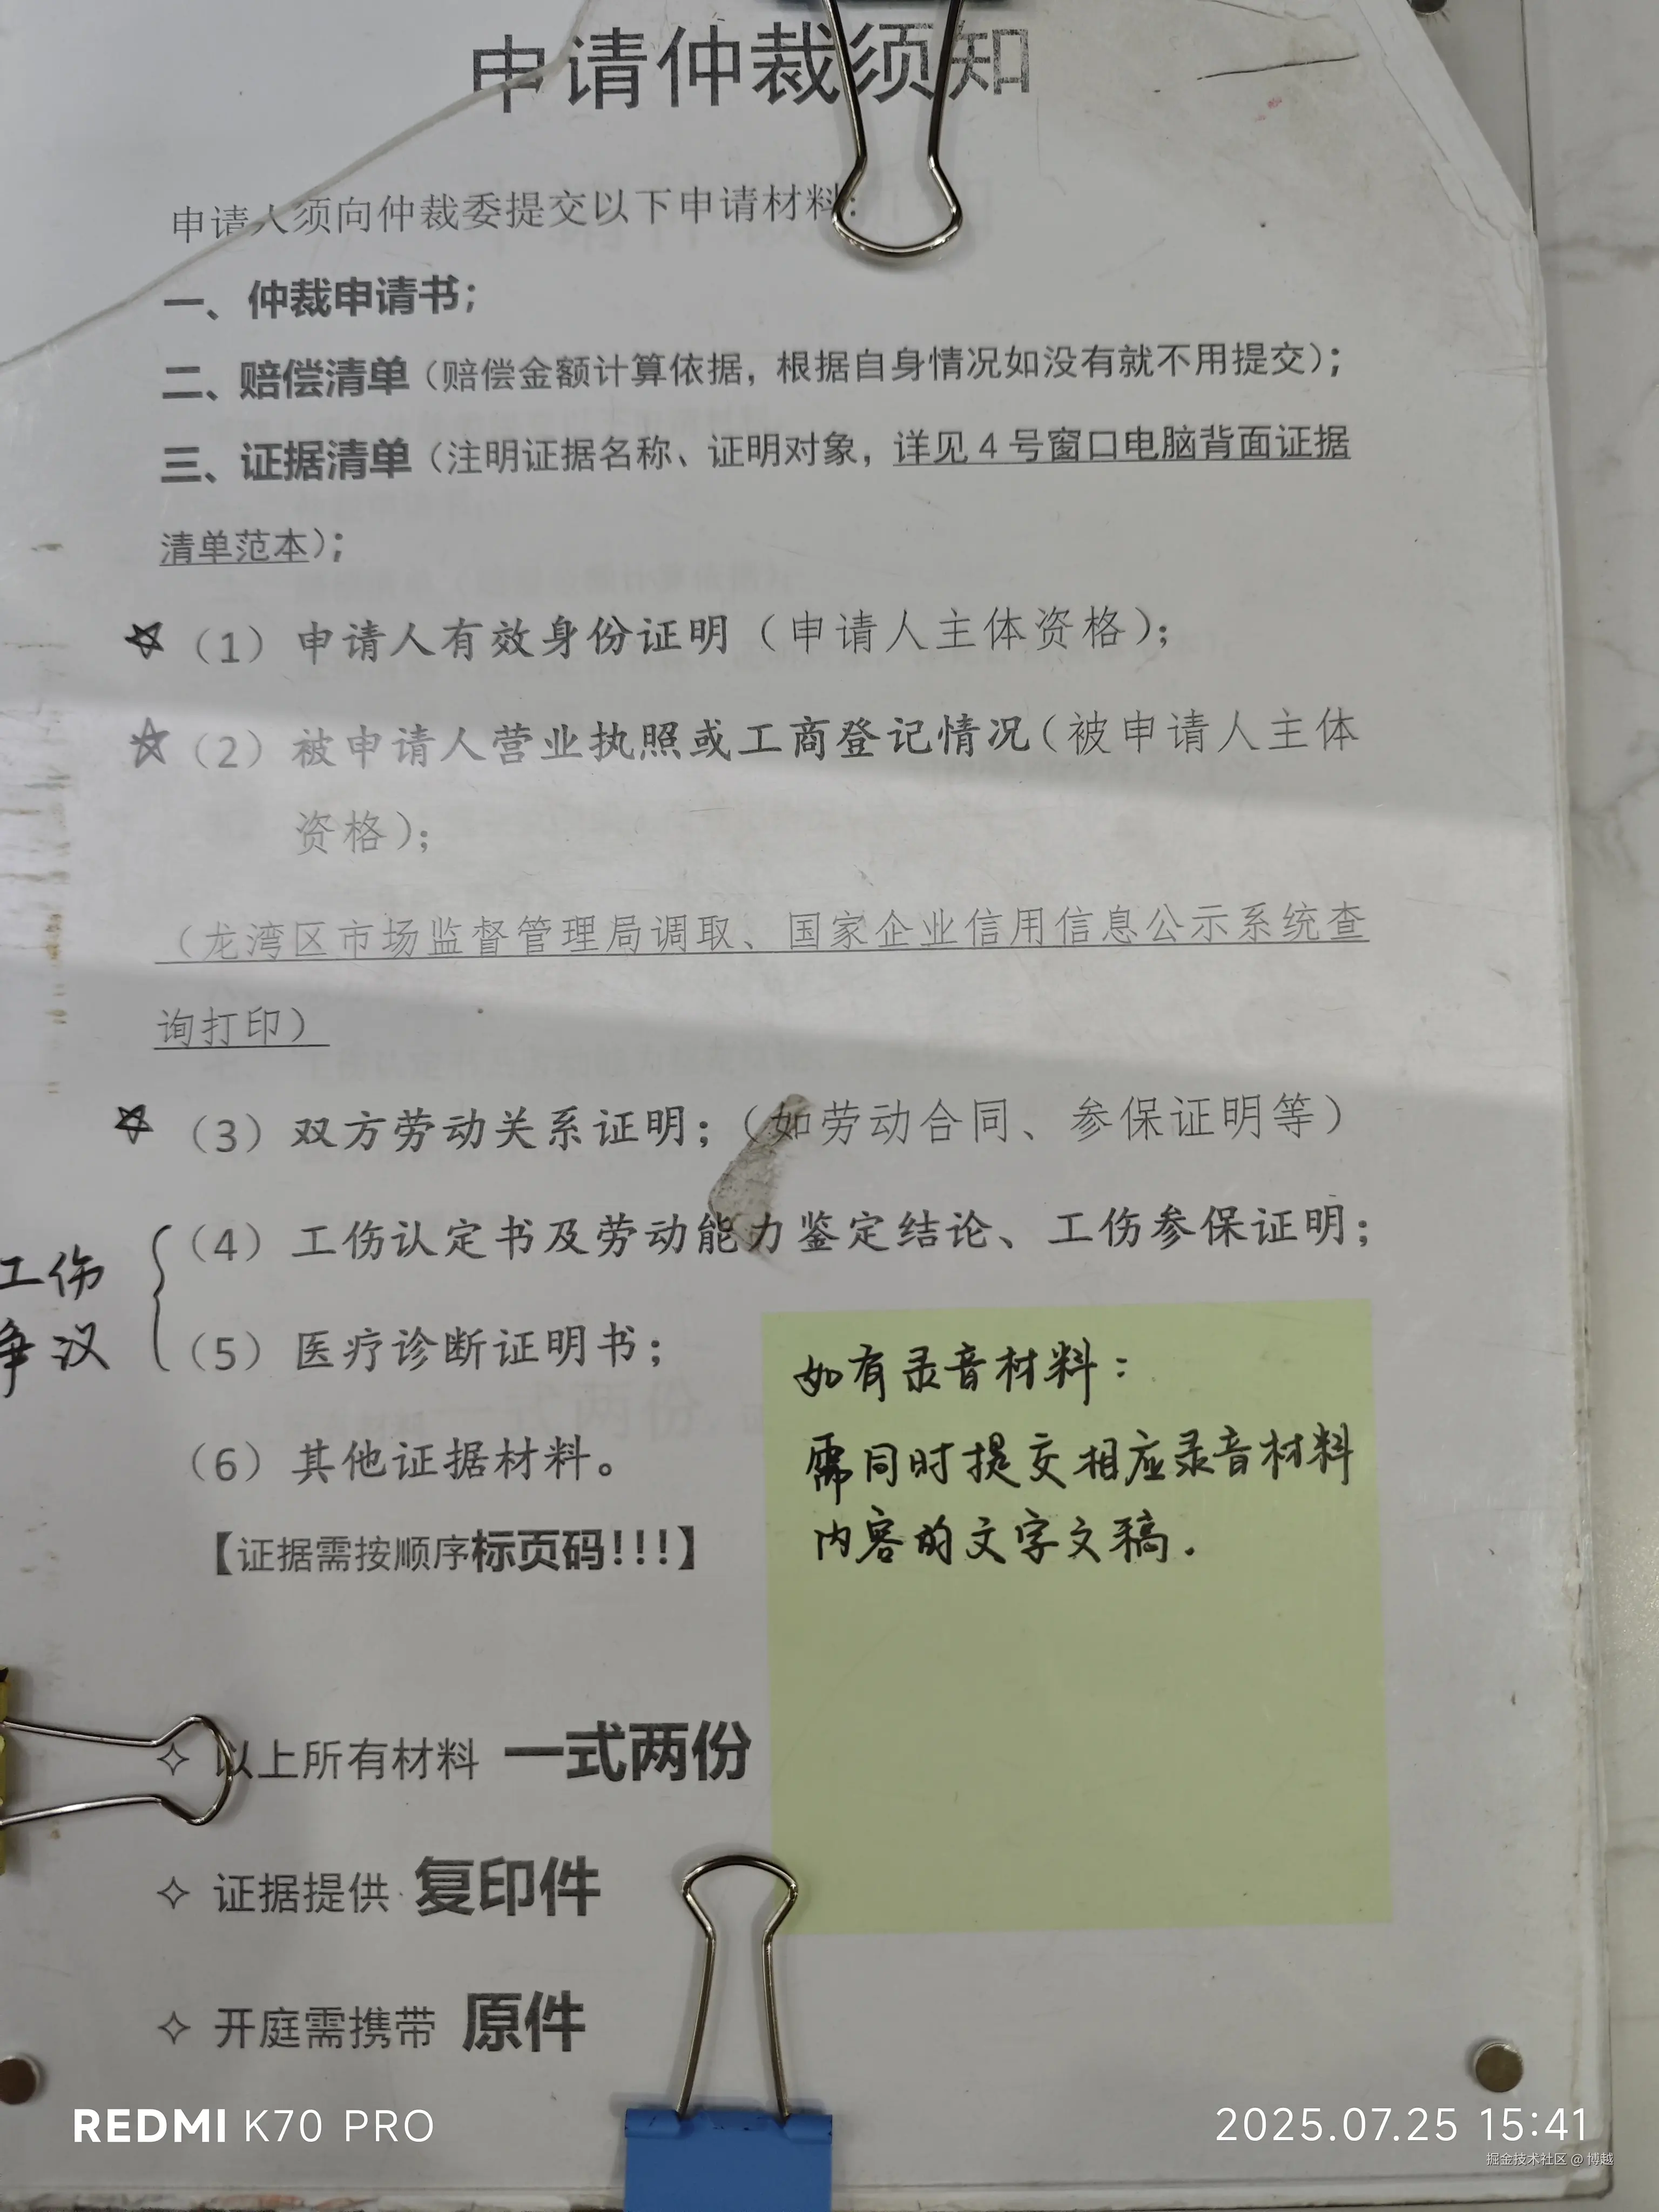 申请仲裁须知
申请人须向仲裁委提交以下申请材料：
一、仲裁申请书；
二、赔偿清单（赔偿金额计算依据，根据自身情况如没有就不用提交）；
三、证据清单（注明证据名称、证明对象，详见4号窗口电脑背面证据
清单范本）；
（1）申请人有效身份证明（申请人主体资格）；
（2）被申请人营业执照或工商登记情况（被申请人主体
资格）；
（龙湾区市场监督管理局调取、国家企业信用信息公示系统查
询打印）
（3）双方劳动关系证明；（如劳动合同、参保证明等）
工伤
争议
（4）工伤认定书及劳动能力鉴定结论、工伤参保证明；
（5）医疗诊断证明书；
（6）其他证据材料。
【证据需按顺序标页码!!!】
如有录音材料：
需同时提交相应录音材料
内容的文字文稿.
以上所有材料 一式两份
证据提供 复印件
开庭需携带 原件
REDMI K70 PRO
2025.07.25 15:41
掘金技术社区 @ 博越